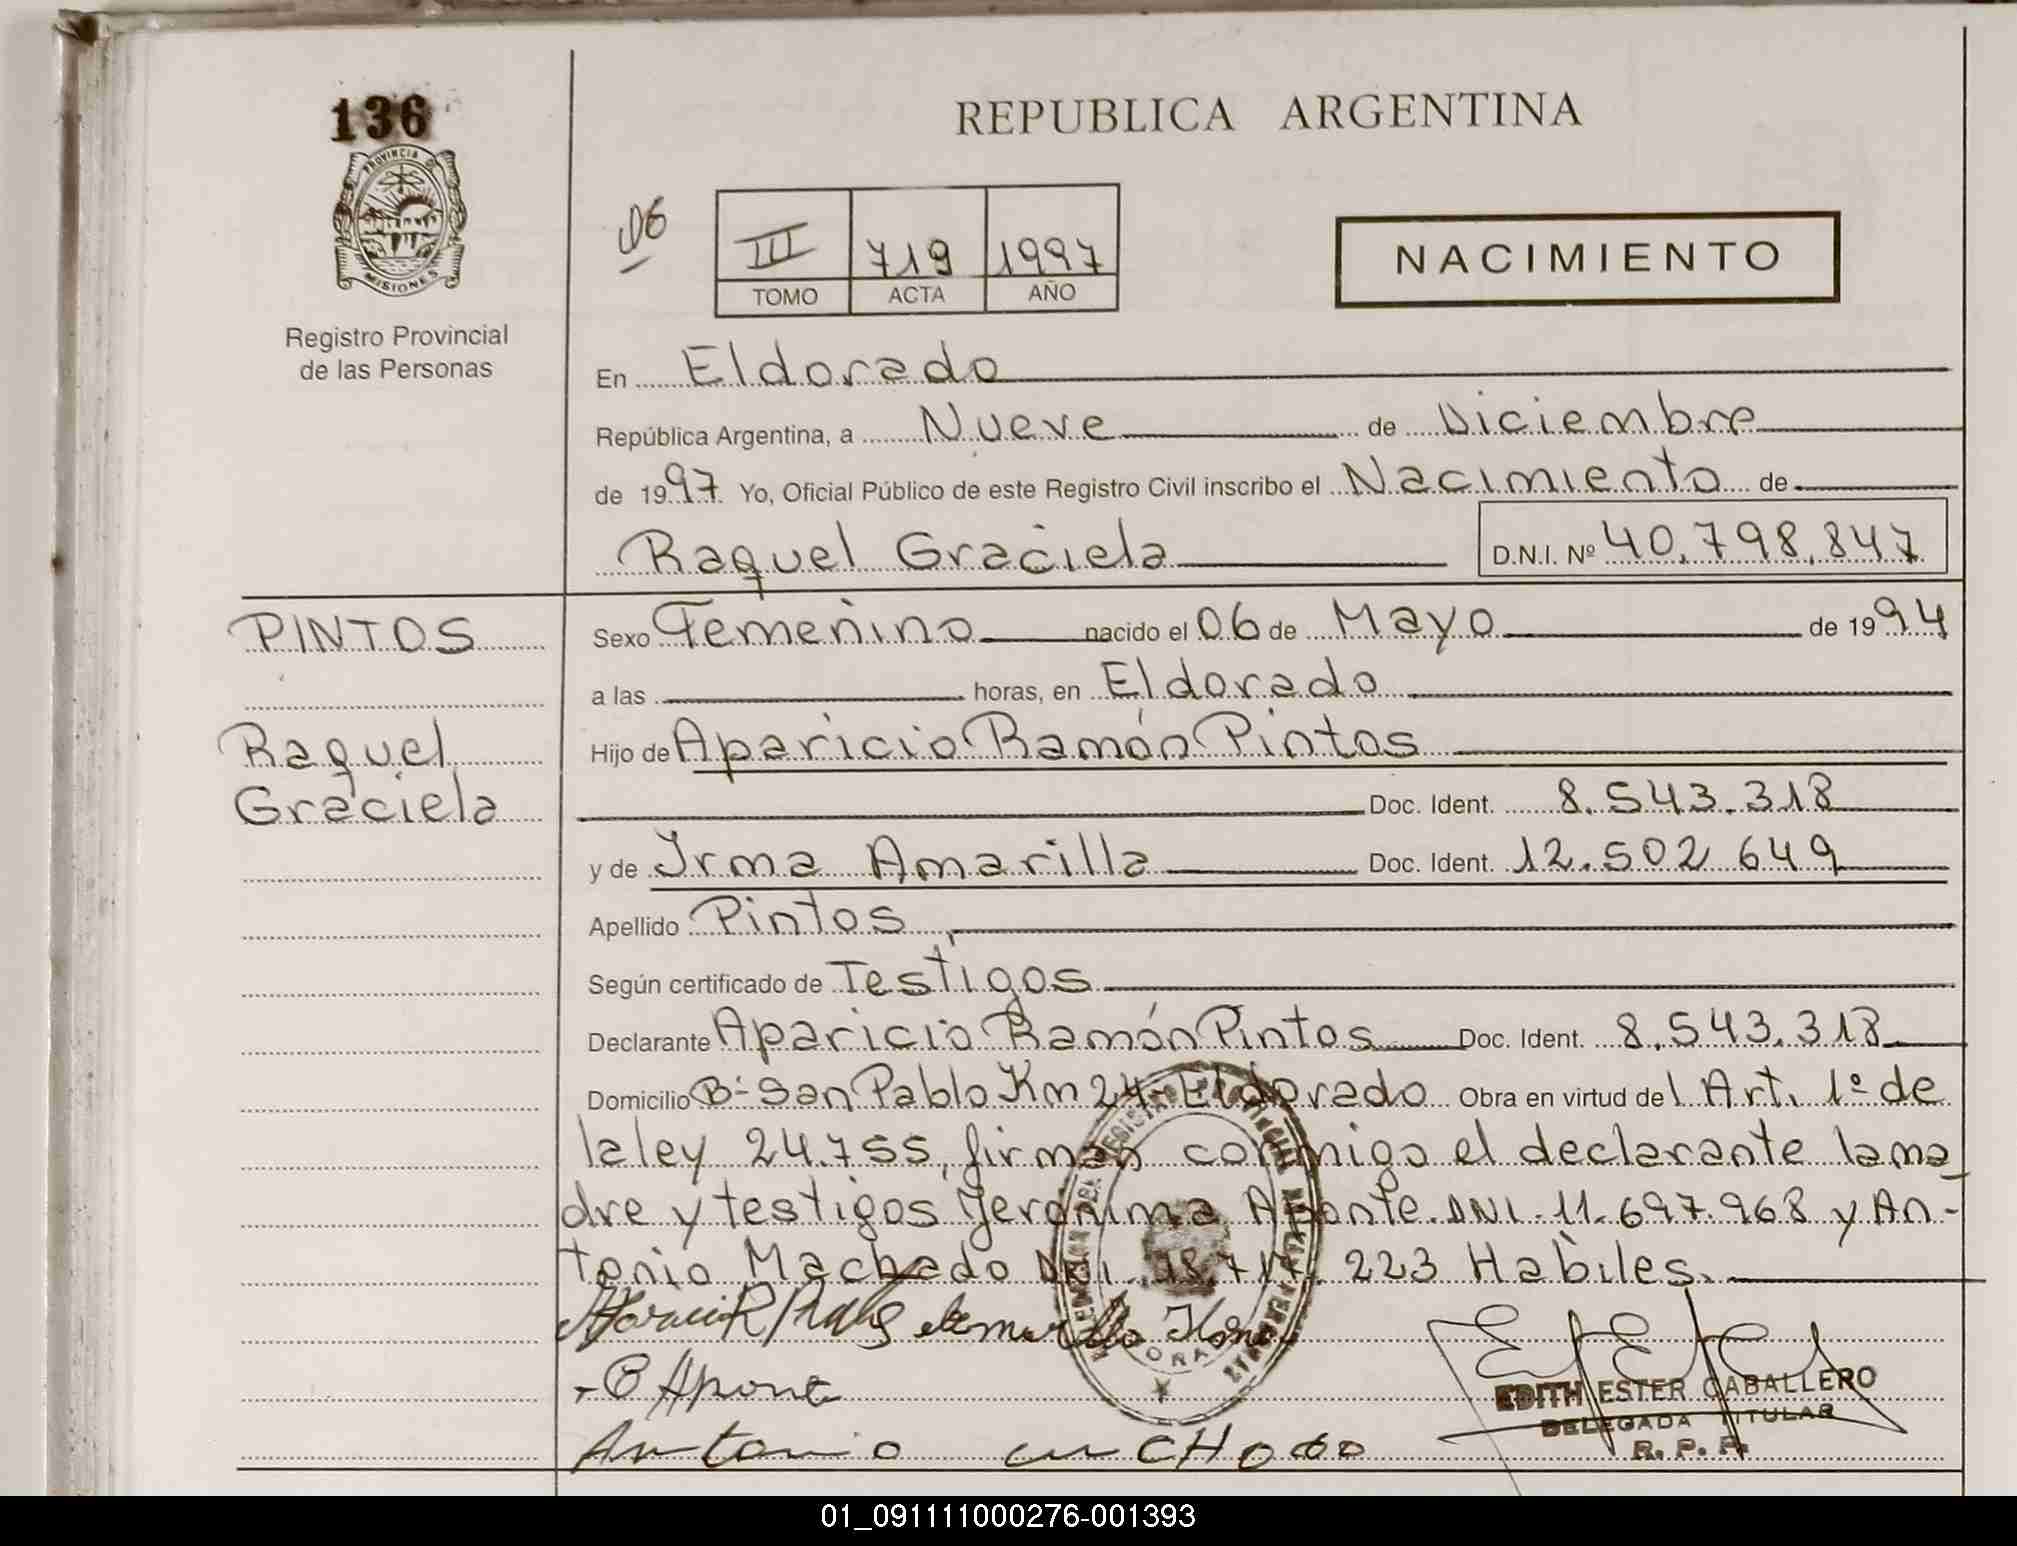 136
PROVINCIA DE
MISIONES
Registro Provincial
de las Personas
REPUBLICA ARGENTINA
06
III 719 1997
TOMO ACTA AÑO
NACIMIENTO
En Eldorado
República Argentina, a Nueve de Diciembre
de 1997 Yo, Oficial Público de este Registro Civil inscribo el Nacimiento de
Raquel Graciela D.N.I. Nº 40.798.847
PINTOS
Sexo Femenino nacido el 06 de Mayo de 1994
a las horas, en Eldorado
Raquel
Graciela
Hijo de Aparicio Ramón Pintos
Doc. Ident. 8.543.318
y de Irma Amarilla Doc. Ident. 12.502.649
Apellido Pintos
Según certificado de Testigos
Declarante Aparicio Ramón Pintos Doc. Ident. 8.543.318
Domicilio Bº San Pablo Km 24- Eldorado Obra en virtud del Art. 1º de
la ley 24.755, firman conmigo el declarante la ma
dre y testigos Jeronima Aponte DNI. 11.697.968 y An-
tonio Machado DNI. 18.717.223 Habiles.
Amarilla Irma
Aponte
Antonio
EDITH ESTER CABALLERO
DELEGADA TITULAR
R. P. P.
01_091111000276-001393